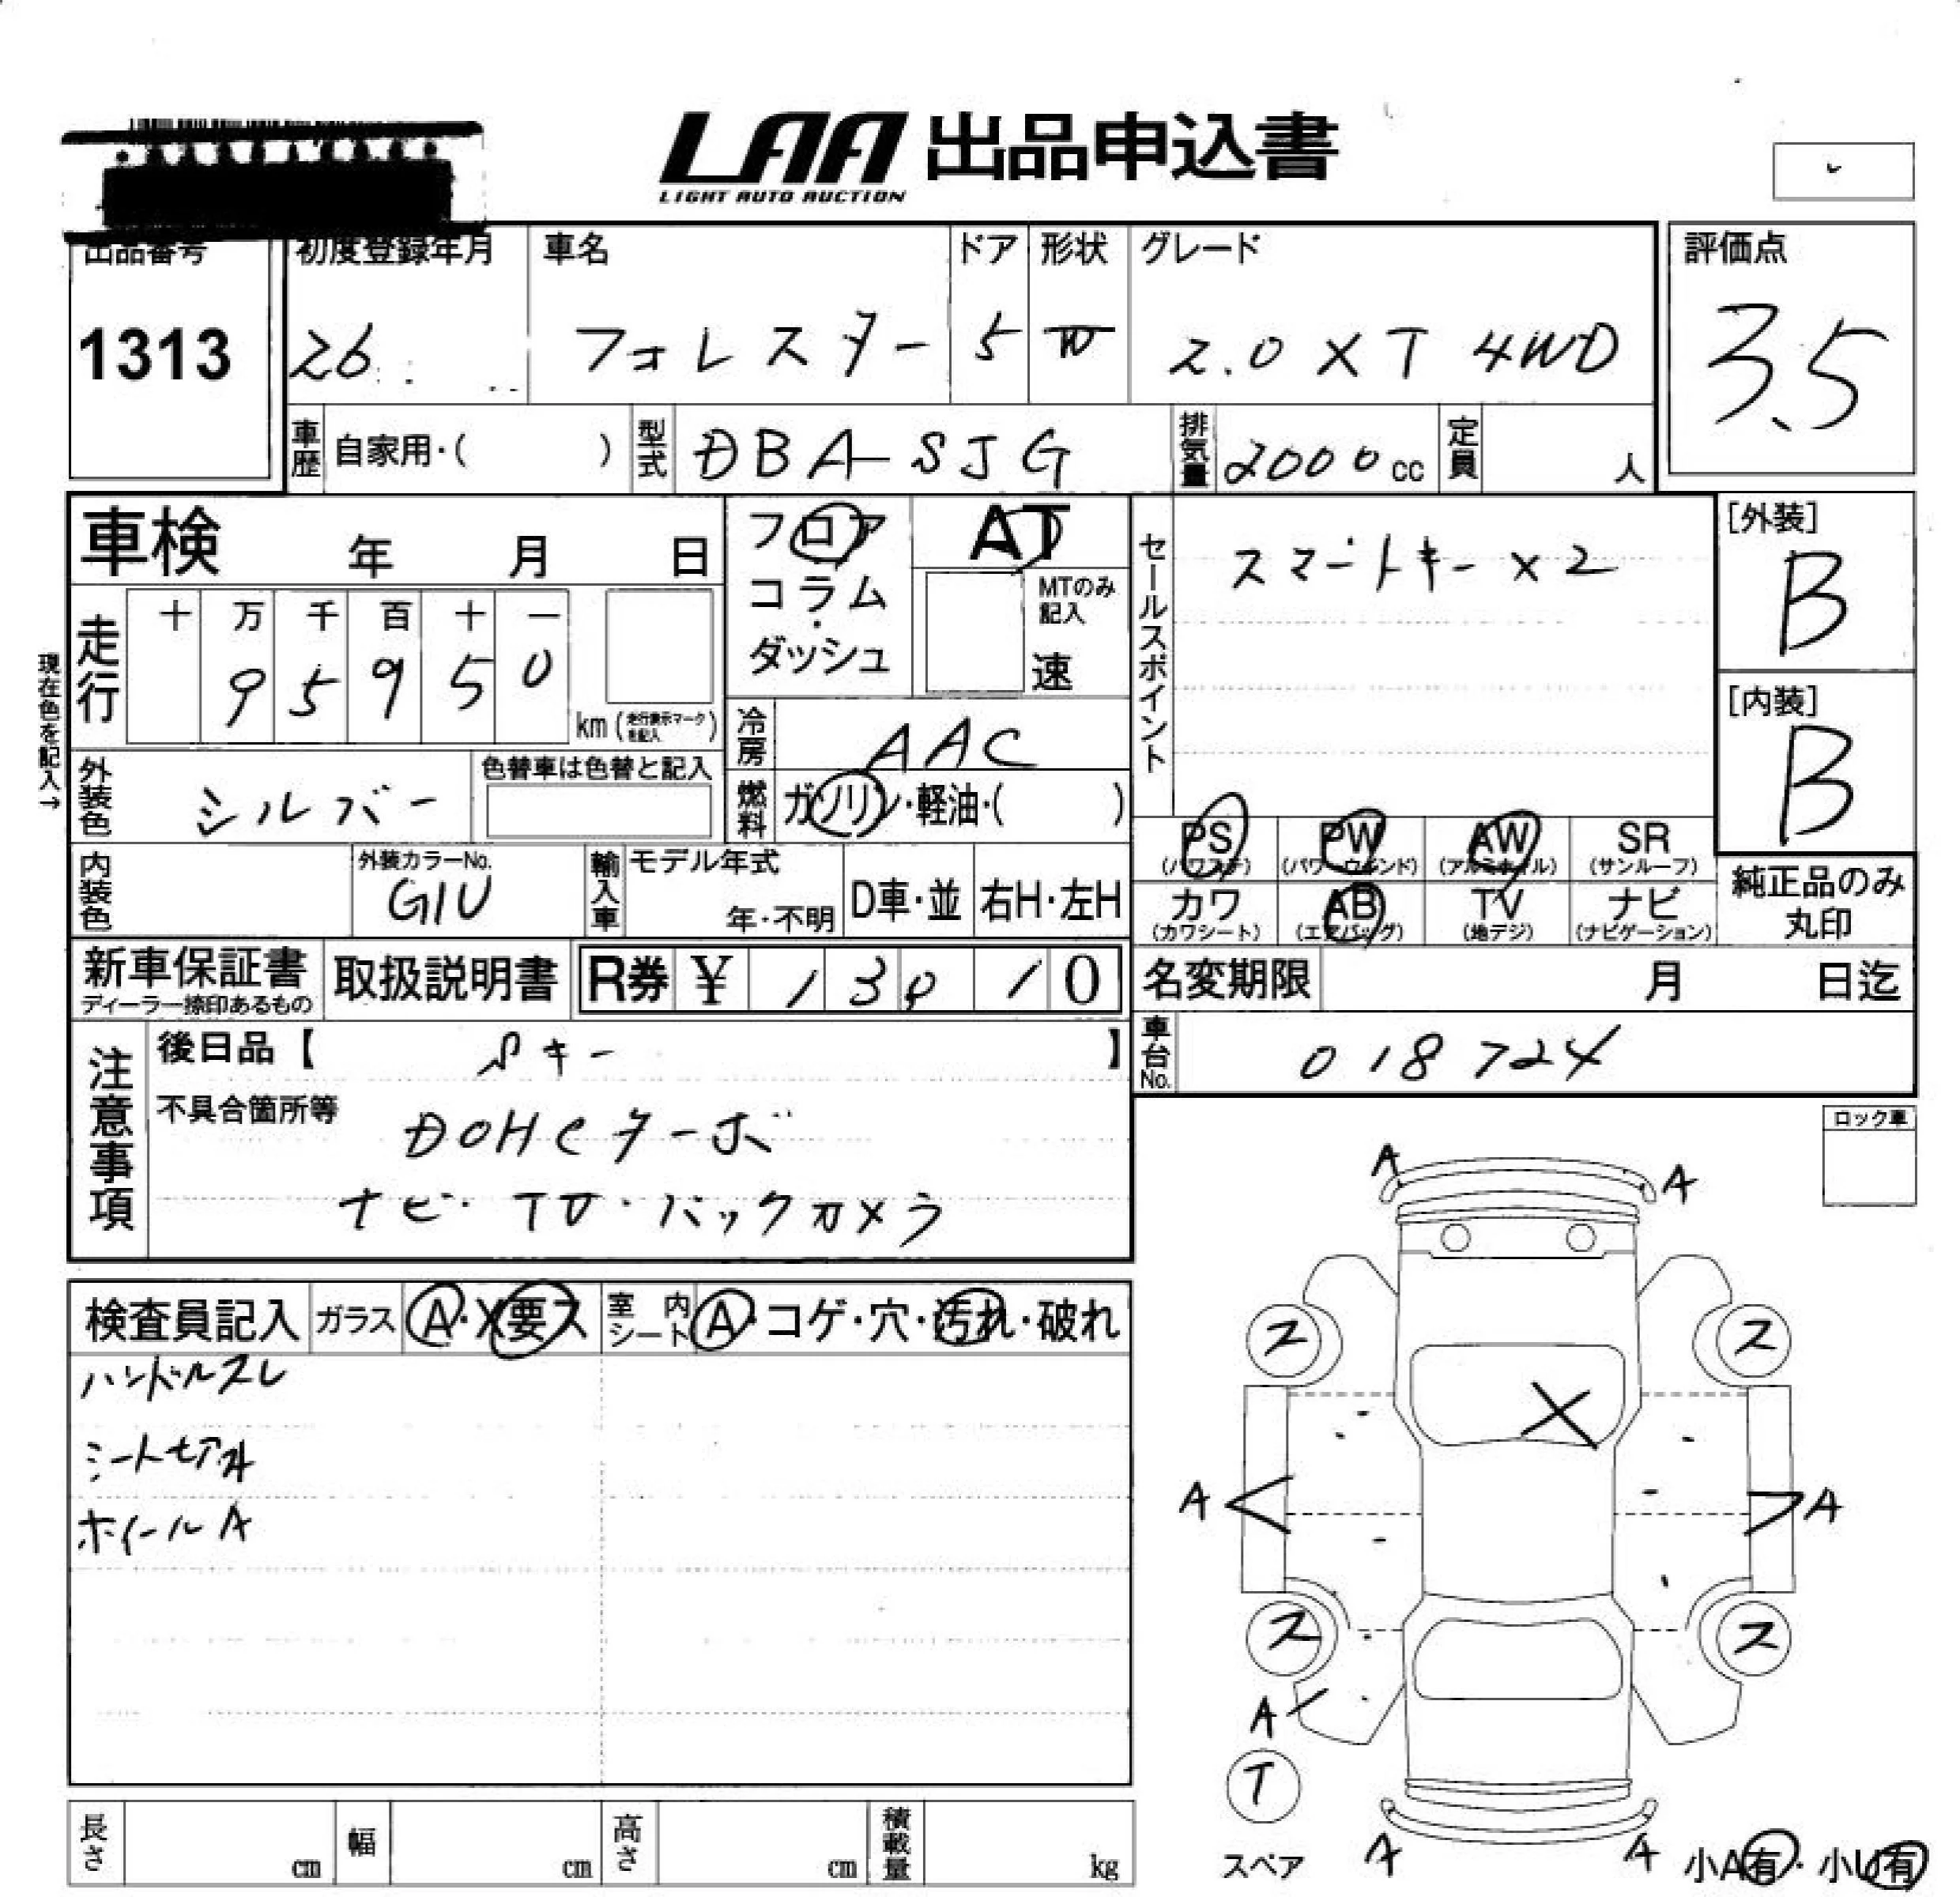 LAA 出品申込書
LIGHT AUTO AUCTION
出品番号 初度登録年月 車名 ドア 形状 グレード 評価点
1313 26 フォレスター 5 W 2.0 XT 4WD 3.5
車歴 自家用・( ) 型式 DBA-SJG 排気量 2000cc 定員 人
車検 年 月 日
フロア
コラム
・
ダッシュ
AT
MTのみ
記入
速
セールスポイント スマートキー×2
[外装]
B
[内装]
B
現在色を記入→
走行 十 万 千 百 十 一
9 5 9 5 0
km (走行表示マークを記入)
冷房 AAC
外装色 シルバー 色替車は色替と記入
燃料 ガソリン・軽油・( )
PS (パワステ) PW (パワーウィンド) AW (アルミホイル) SR (サンルーフ)
カワ (カワシート) AB (エアバッグ) TV (地デジ) ナビ (ナビゲーション)
純正品のみ
丸印
内装色 外装カラーNo. G1U 輸入車 モデル年式 年・不明 D車・並 右H・左H
新車保証書 ディーラー捺印あるもの 取扱説明書 R券 ¥ 1 3 9 1 0 名変期限 月 日迄
注意事項
後日品【 Sキー 】
車台No. 018724
不具合箇所等 DOHCターボ
ナビ・TV・バックカメラ
ロック車
検査員記入 ガラス A・X要ス 室内シート A・コゲ・穴・汚れ・破れ
ハンドルスレ
ホイールA
A A
ス ス
X
A A
ス ス
A
T
スペア A A 小A有・小U有
長さ cm 幅 cm 高さ cm 積載量 kg